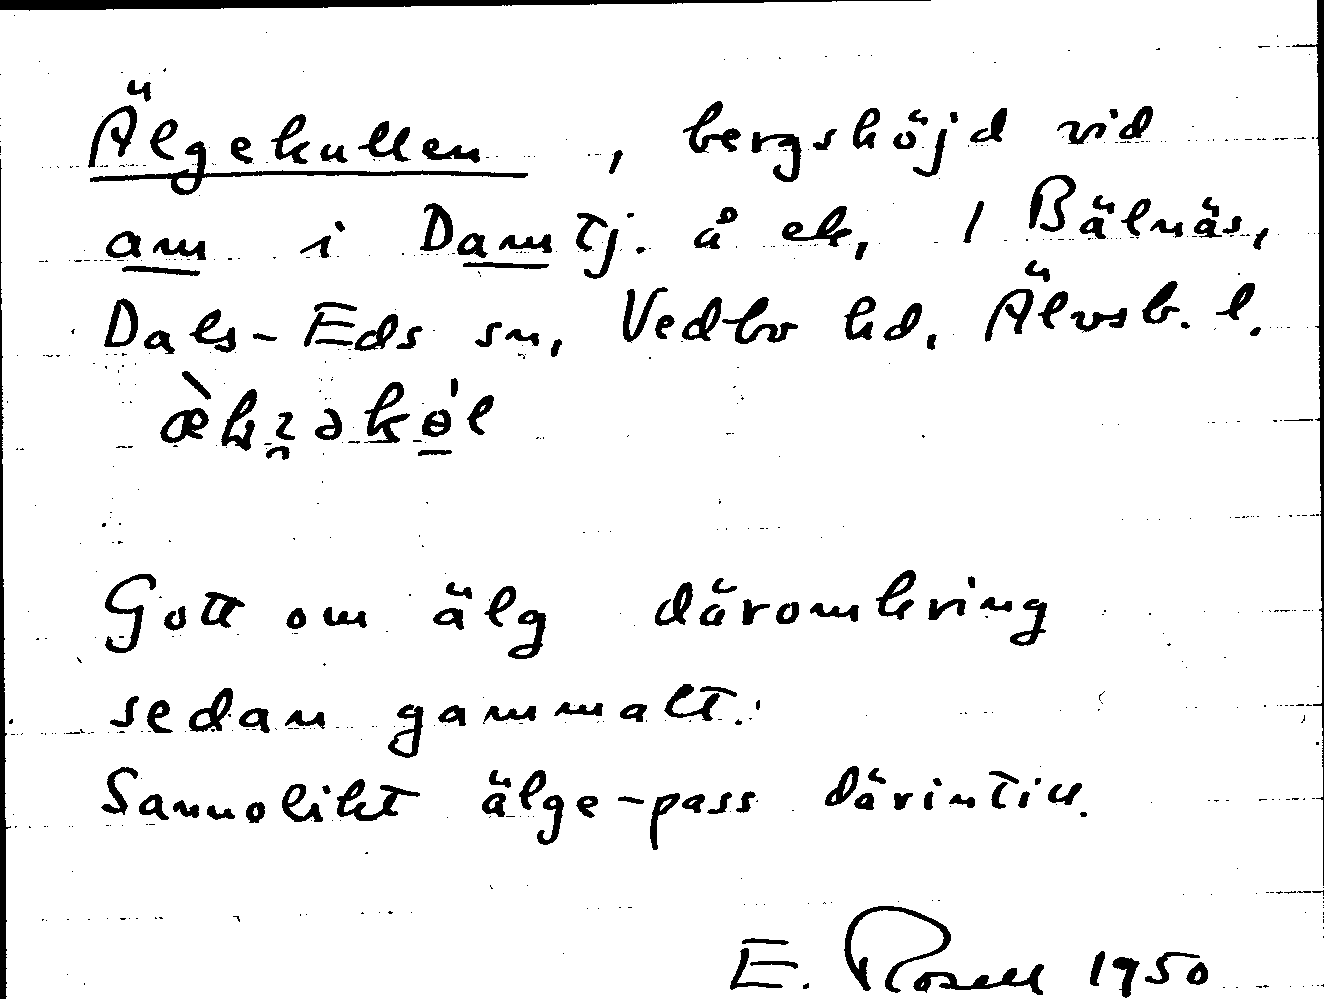 Älgekullen , bergshöjd vid
am i Damtj. å ek, 1 Bälnäs,
Dals-Eds sn, Vedbo hd. Älvsb. l.
Gott om älg däromkring
sedan gammalt.
Sannolikt älge-pass därintill.
E. Rosell 1950